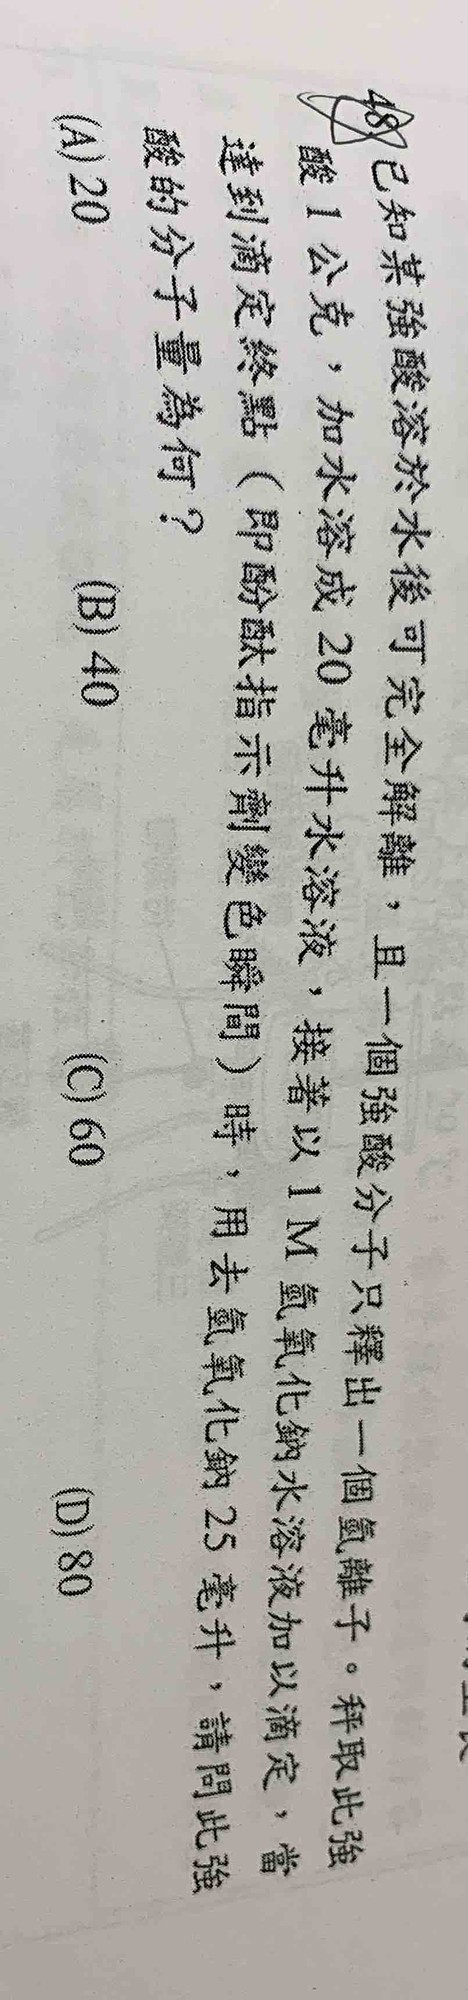 48 已知某強酸溶於水後可完全解離，且一個強酸分子只釋出一個氫離子。秤取此強
酸 1 公克，加水溶成 20 毫升水溶液，接著以 1 M 氫氧化鈉水溶液加以滴定，當
達到滴定終點（即酚酞指示劑變色瞬間）時，用去氫氧化鈉 25 毫升，請問此強
酸的分子量為何？
(A) 20 (B) 40 (C) 60 (D) 80